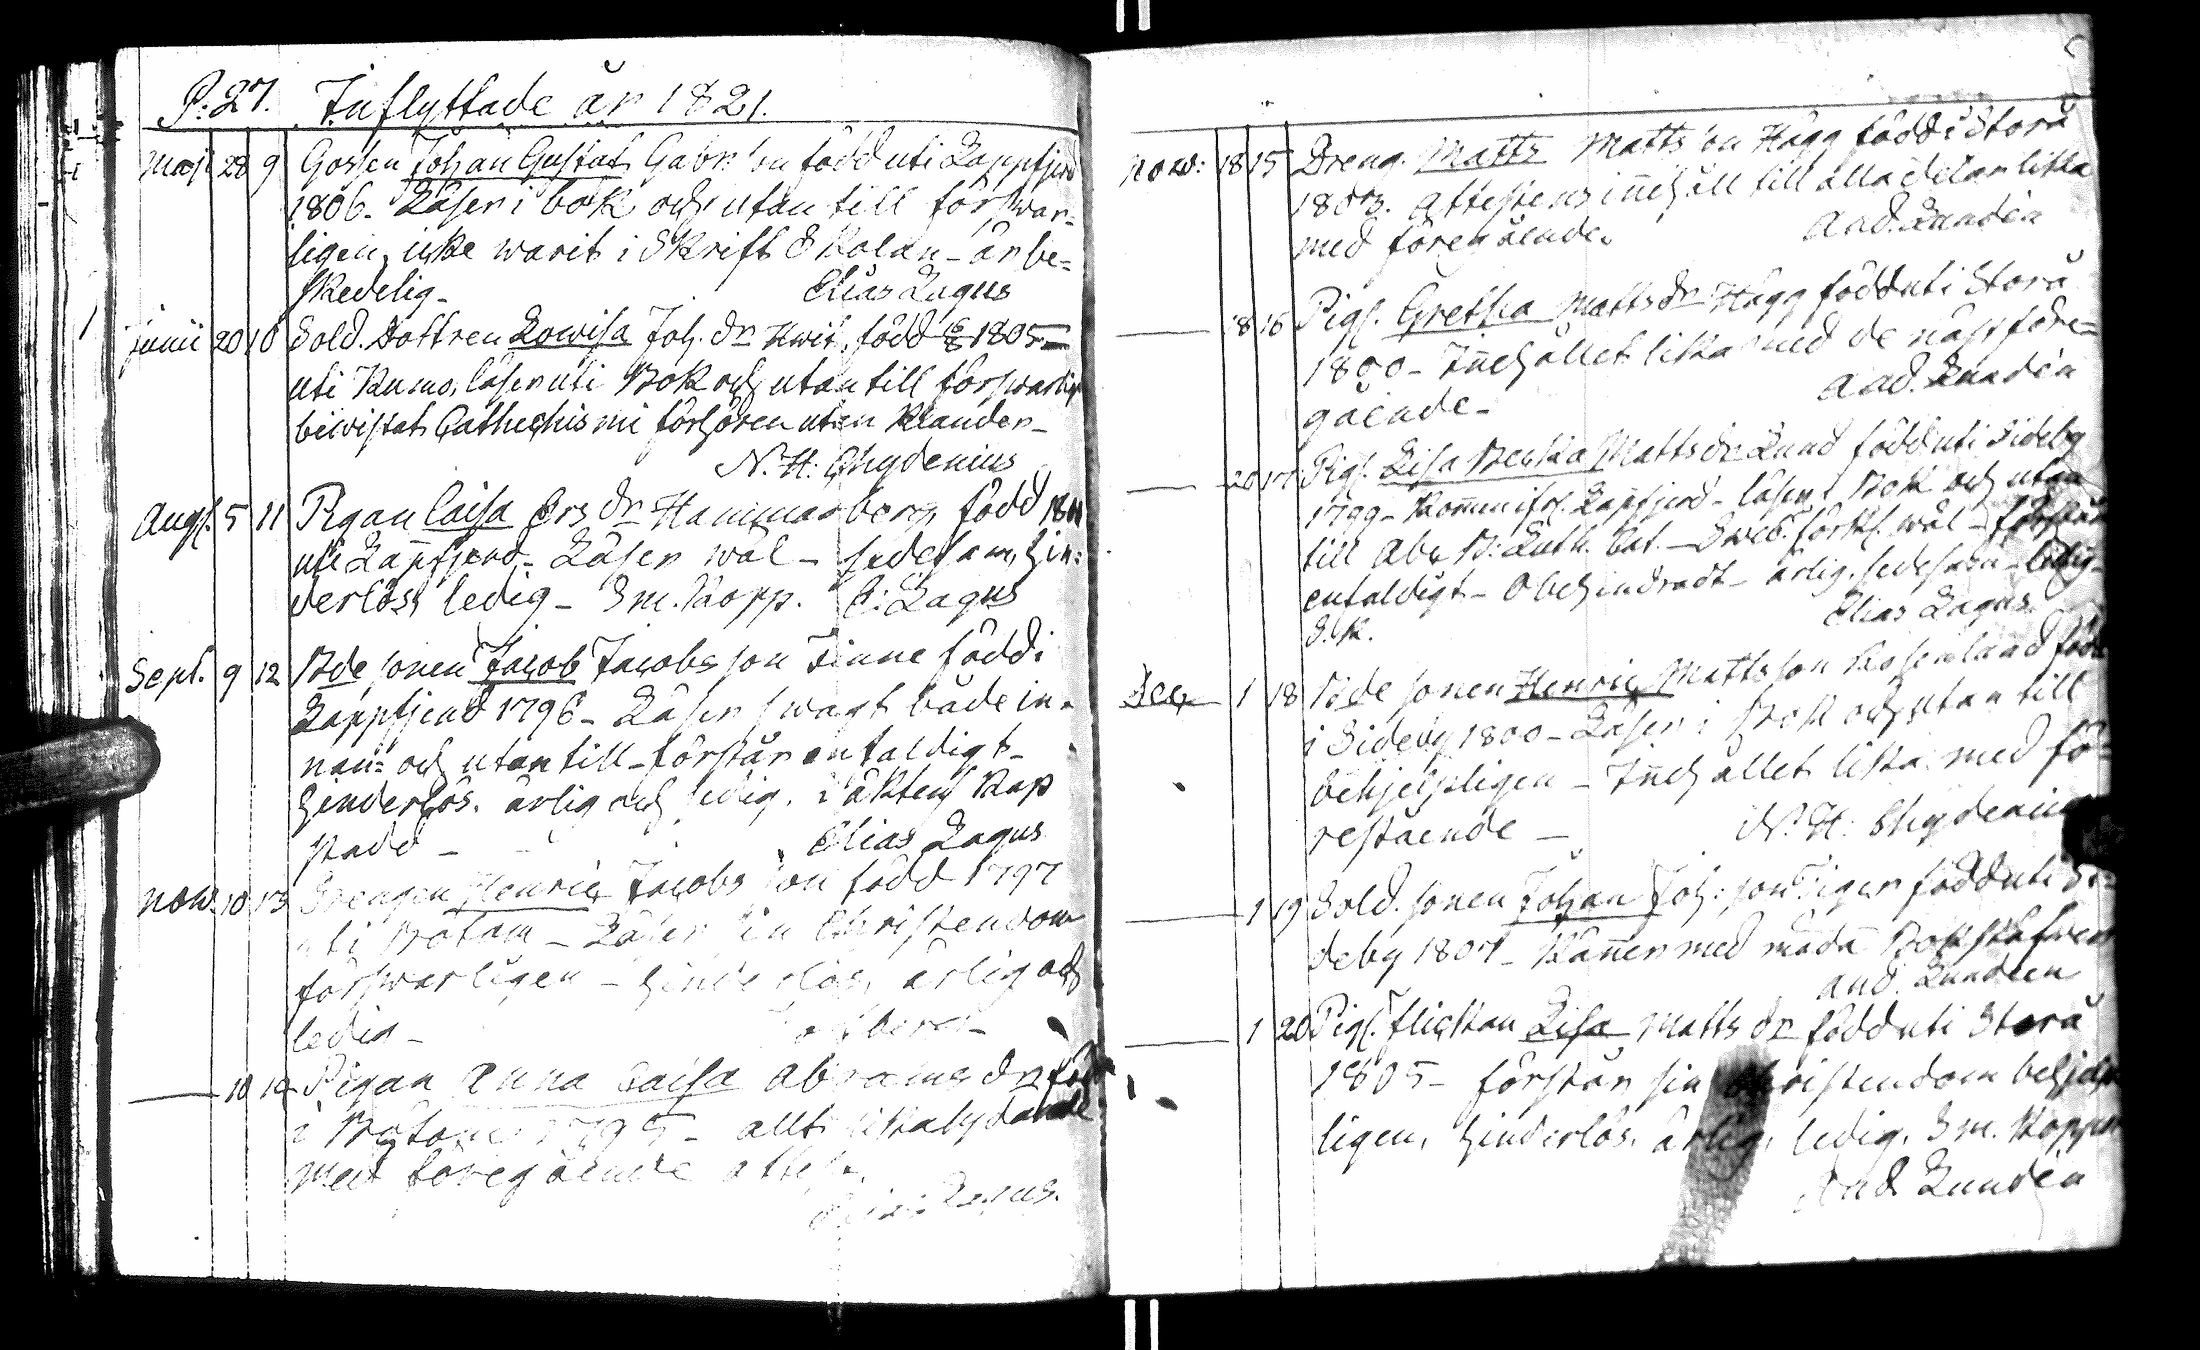 P: 27. Inflyttade år 1821.
Maji 28 9 Gossen Johan Gustaf Gabr. son född uti Lappfjerd
1806. Läser i bok och utan till förswar-
ligen, icke warit i Skrift Skolan - är be-
skedelig - Elias Lagus
Junii 20 10 Sold. Dottren Lowisa Joh. dr Hwit, född 1805
uti Kumo, läser uti Bok och utan till förswarlig
bewistat Cathechismi förhören utan klander -
N. H: Chydenius
Augs. 5 11 Pigan Caisa Ers dr Hammarberg, född
uti Lappfjerd - Läser wäl - sedesam, hin-
derlös, ledig - Sm. Kopp. E: Lagus
Sept. 9 12 Bde sonen Jacob Jacobs son Finne född i
Lappfjerd 1796 - Läser swagt både in-
nan- och utan till - förstår enfaldigt -
hinderlös. ärlig och ledig. Kop
Elias Lagus
now. 10 13 Drengen Henric Jacobs son född 1797
uti Bötom - Läser sin Christendom
förswarligen - hinderlös, ärlig och
ledig -
10 14 Pigan Anna Caisa Abrams dr född
i Bötom 1795 - allt likalydande
med föregående attest.
Elias Lagus.
now: 18 15 Dreng. Matts Matts son Hägg född i Storå
attestens innehåll till alla delar lika
med föregående. And. Lundén
18 16 Pigs. Gretha Matts dr Hägg född uti Storå
1800 - Innehållet lika med de näst före-
gående - And. Lundén
20 17 Pigs. Lisa Matts dr Lund född uti Sideby
1799 - Kommen ifrån Lappfjerd - läser i Bok och utan
till Abc B: Luth. Cat. - Sweb. förkl. wäl - förstår
enfaldigt - Obehindradt - ärlig, sedesam - ledig -
S. K. Elias Lagus
Dec. 1 18 Bde sonen Henric Matts son Rosenlund född
i Sideby 1800 - Läser i Bok och utan till
behjelpligen - Innehållet lika med fö-
restående - N. H: Chydenius
1 19 Sold. sonen Johan Joh: son Tiger född uti Si-
deby 1807 - Känner med möda Bokstäfwer
And. Lundén
1 20 Pigs. flickan Lisa Matts dr född uti Storå
1805 - förstår sin Christendom behjelp-
ligen, hinderlös, ärlig, ledig. Sm. Koppor
And. Lundén